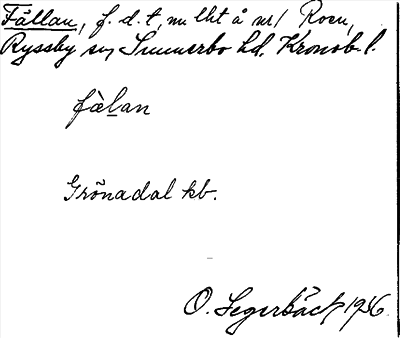 Fållan, f. d. t, nu lht å nr 1 Roen,
Ryssby sn, Sunnerbo hd. Kronob. l.
fàl̲an
Grönadal kb.
O. Segerbäck 1936